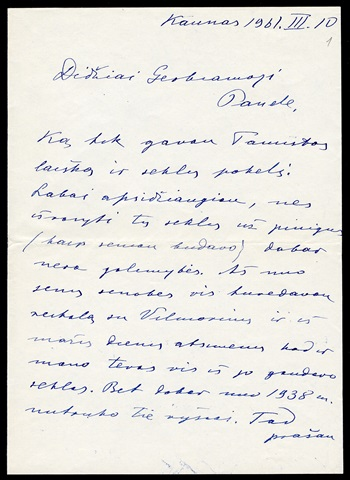 Kaunas 1961.III.10
1
Didžiai Gerbiamoji
Panele,
Ką tik gavau Tamistos
laišką ir sėklų paketą.
Labai apsidžiaugiau, nes
išrašyti tų sėklų už pinigus
(kaip seniau būdavo) dabar
nėra galimybės. Aš nuo
seno vis
su Vilmorinu ir iš
mažų dienų atsimenu kad ir
mano tėvas vis iš jo gaudavo
sėklas. Bet dabar nuo 1938 m.
nutrūko tie ryšiai. Tad
prašau